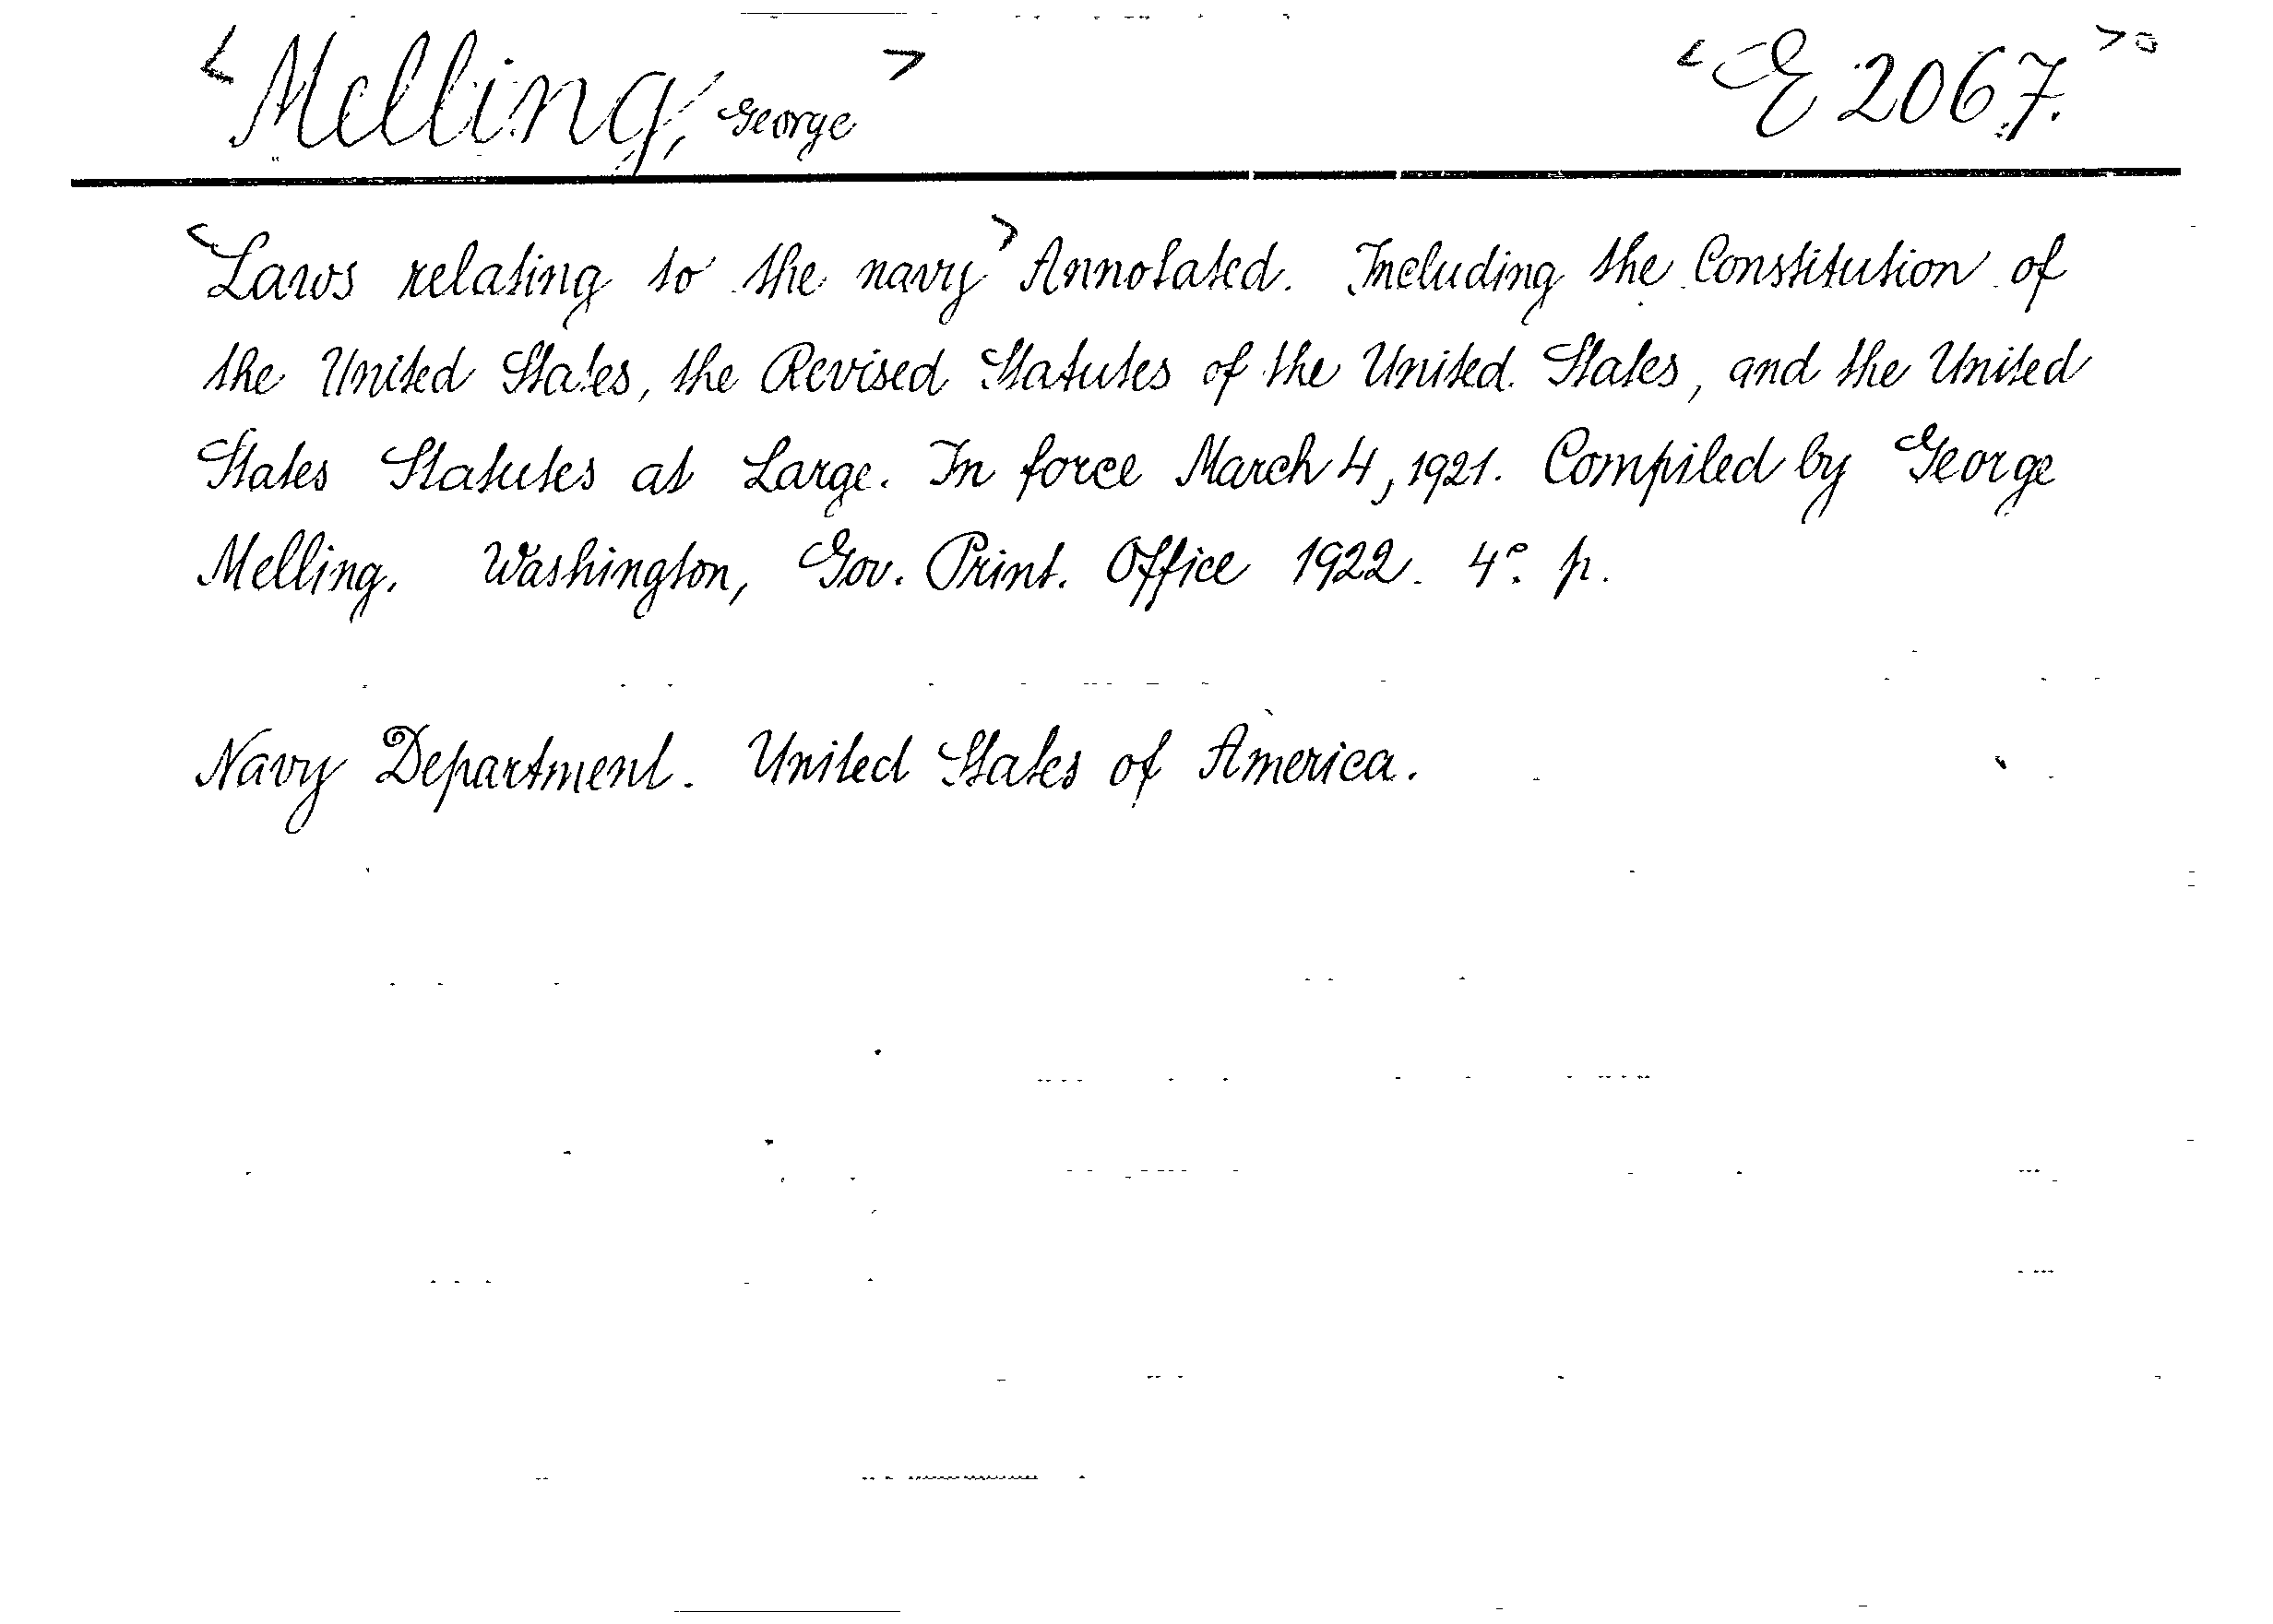 <Melling, George> <E 2067.>
<Laws relating to the navy> Annotated. Including the Constitution of
the United States, the Revised Statutes of the United States, and the United
States Statutes at Large. In force March 4, 1921. Compiled by George
Melling. Washington, Gov. Print. Office 1922. 4°. p.
Navy Department. United States of America.